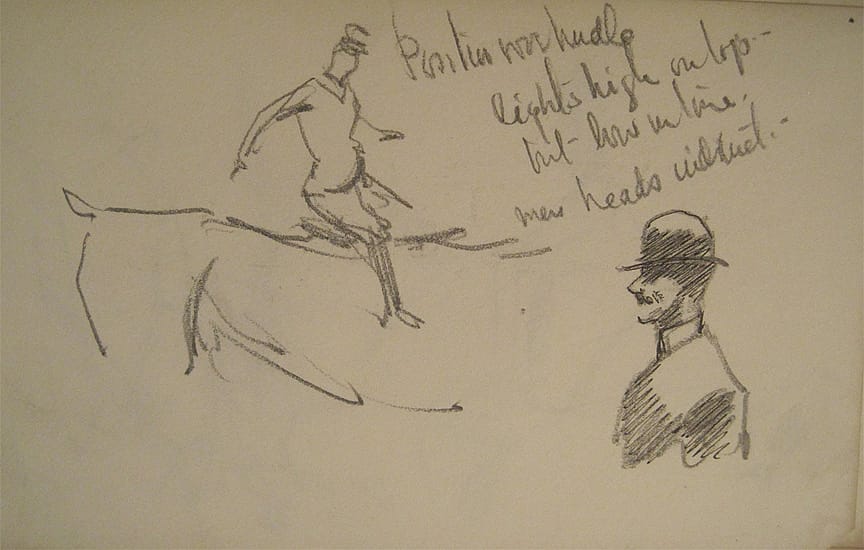 Position over hurdle
lights high on top -
but low in tone.
mens heads indistinct. -